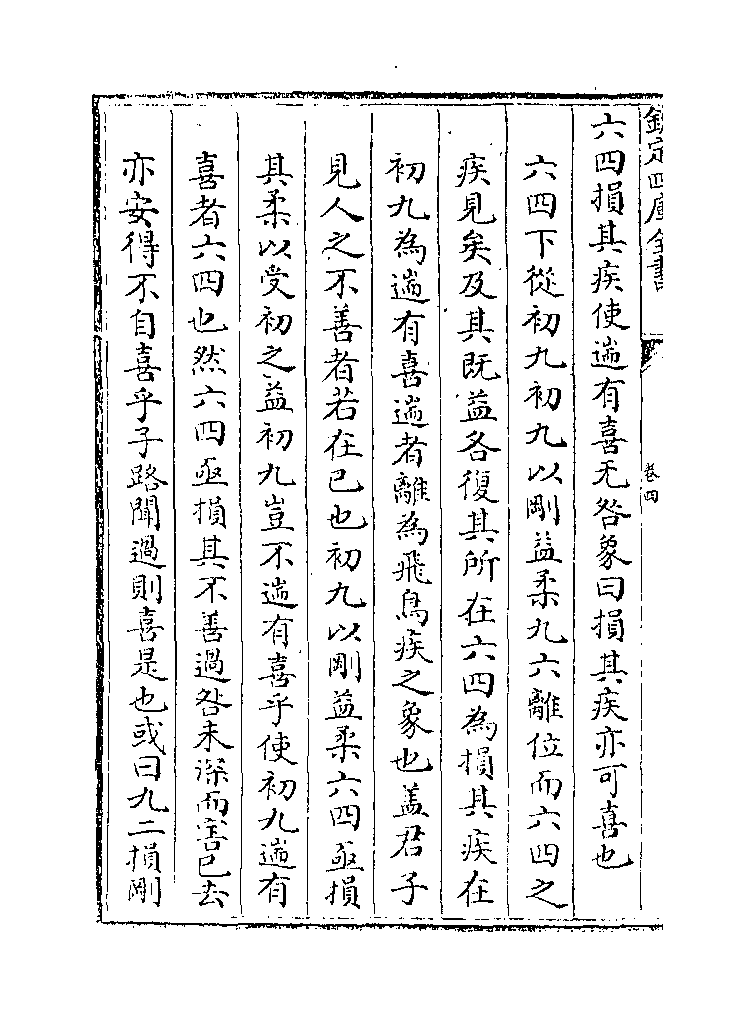 欽定四庫全書
卷四
六四損其疾使遄有喜无咎象曰損其疾亦可喜也
六四下從初九初九以剛益柔九六離位而六四之
疾見矣及其既益各復其所在六四為損其疾在
初九為遄有喜遄者離為飛鳥疾之象也盖君子
見人之不善者若在已也初九以剛益柔六四亟損
其柔以受初之益初九豈不遄有喜乎使初九遄有
喜者六四也然六四亟損其不善過咎未深而害已去
亦安得不自喜乎子路聞過則喜是也或曰九二損剛